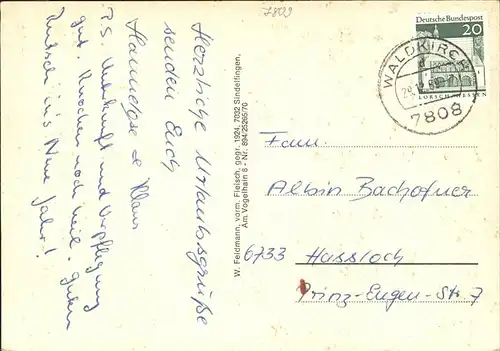 7809
Herzliche Urlaubsgrüße
senden Euch
Hannelore & Klaus
P.S. Unterkunft und Verpflegung
gut. Knochen noch heil. Guten
Rutsch in's Neue Jahr!
W. Feldmann, vorm. Fleisch, gegr. 1924, 7032 Sindelfingen,
Am Vogelhain 8 - Nr. 894/25265/70
Deutsche Bundespost
20
LORSCH/HESSEN
WALDKIRCH
7808
Fam.
Albin Bachofner
6733 Hassloch
Prinz-Eugen-Str. 7